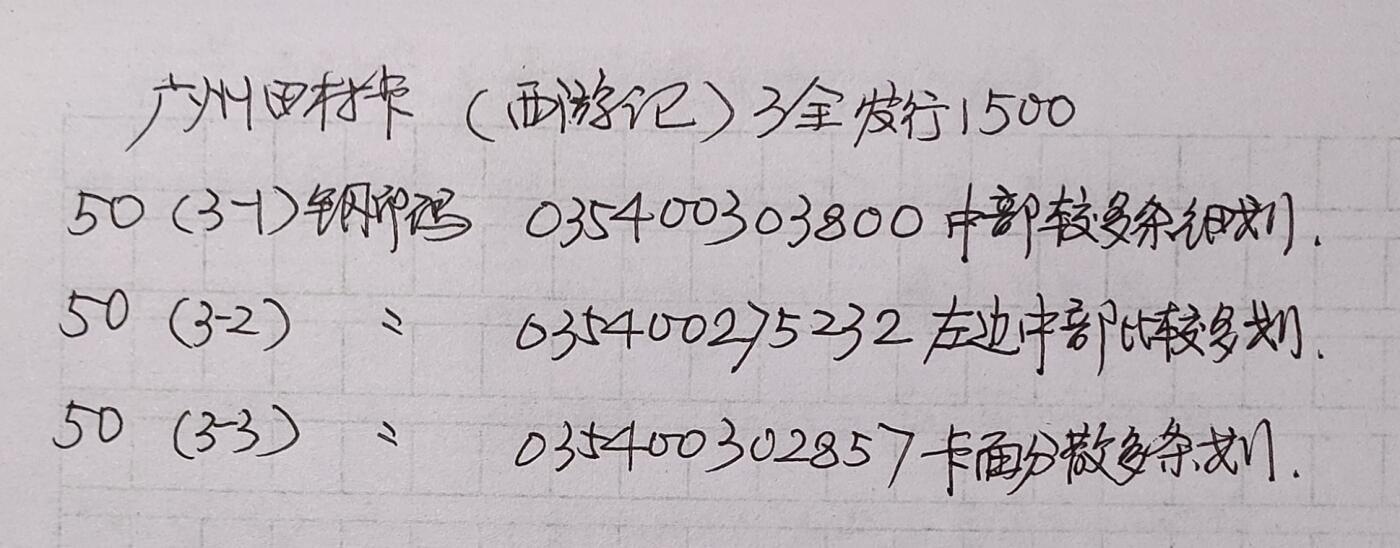 广州田村卡（西游记）3全发行1500
50 (3-1) 钢印码 035400303800 中部较多条细划.
50 (3-2) 〃 035400275232 左边中部比较多划.
50 (3-3) 〃 035400302857 卡面分散多条划.